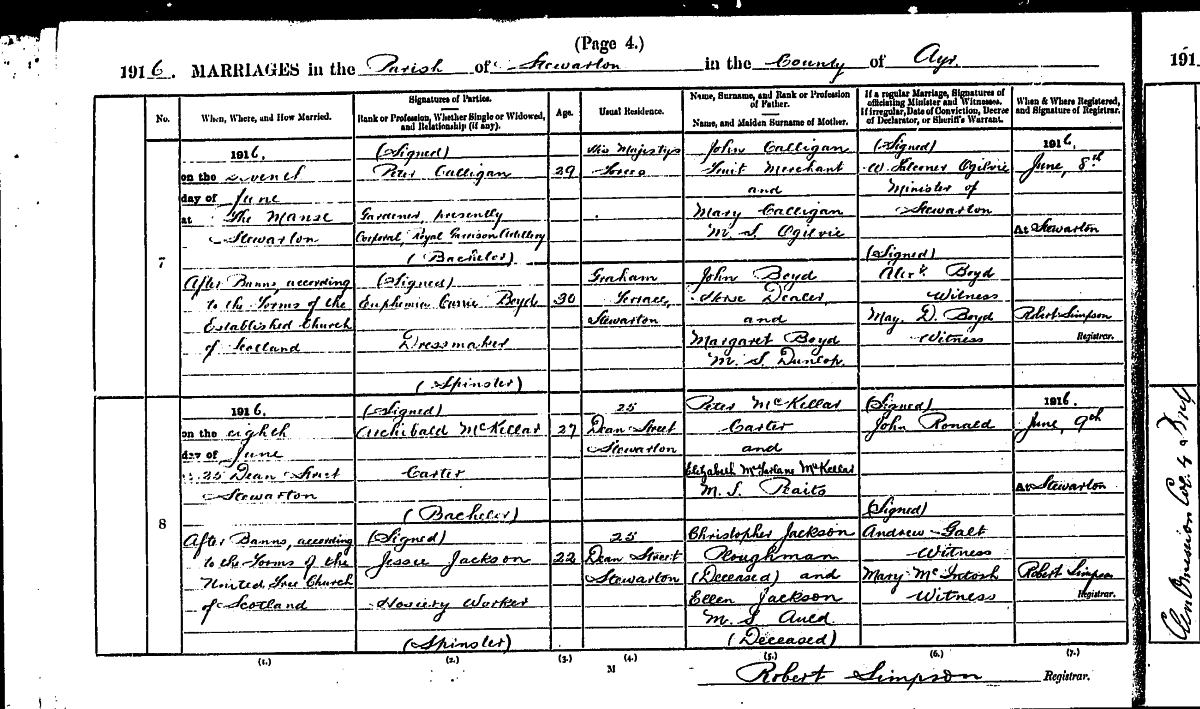 (Page 4.)
1916. MARRIAGES in the Parish of Stewarton in the County of Ayr.
191
No.
When, Where, and How Married.
Signatures of Parties.
Rank or Profession, Whether Single or Widowed, and Relationship (if any).
Age.
Usual Residence.
Name, Surname, and Rank or Profession of Father.
Name, and Maiden Surname of Mother.
If a regular Marriage, Signatures of officiating Minister and Witnesses.
If irregular, Date of Conviction, Decree of Declarator, or Sheriff's Warrant.
When & Where Registered, and Signature of Registrar.
7
1916,
on the seventh
day of June
at The Manse
Stewarton
After Banns, according
to the Forms of the
Established Church
of Scotland
(Signed)
Peter Calligan
Gardener, presently
Corporal, Royal Garrison Artillery
(Bachelor)
(Signed)
Euphemia Currie Boyd
Dressmaker
(Spinster)
29
30
His Majesty's
Forces
Graham
Terrace,
Stewarton
John Calligan
Fruit Merchant
and
Mary Calligan
M. S. Ogilvie
John Boyd
Horse Dealer,
and
Margaret Boyd
M. S. Dunlop.
(Signed)
W. Falconer Ogilvie
Minister of
Stewarton
(Signed)
Alexr. Boyd
Witness
May. D. Boyd
Witness
1916,
June, 8th
At Stewarton
Robert Simpson
Registrar.
8
1916.
on the eighth
day of June
25 Dean Street
Stewarton
After Banns, according
to the Forms of the
United Free Church
of Scotland
(Signed)
Archibald McKellar
Carter
(Bachelor)
(Signed)
Jessie Jackson
Hosiery Worker
(Spinster)
27
22
25
Dean Street
Stewarton
25
Dean Street
Stewarton
Peter McKellar
Carter
and
Elizabeth McFarlane McKellar
M. S. Raits
Christopher Jackson
Ploughman
(Deceased) and
Ellen Jackson
M. S. Auld
(Deceased)
(Signed)
John Ronald
(Signed)
Andrew Galt
Witness
Mary McIntosh
Witness
1916.
June, 9th
At Stewarton
Robert Simpson
Registrar.
(1.) (2.) (3.) (4.) (5.) (6.) (7.)
M
Robert Simpson Registrar.